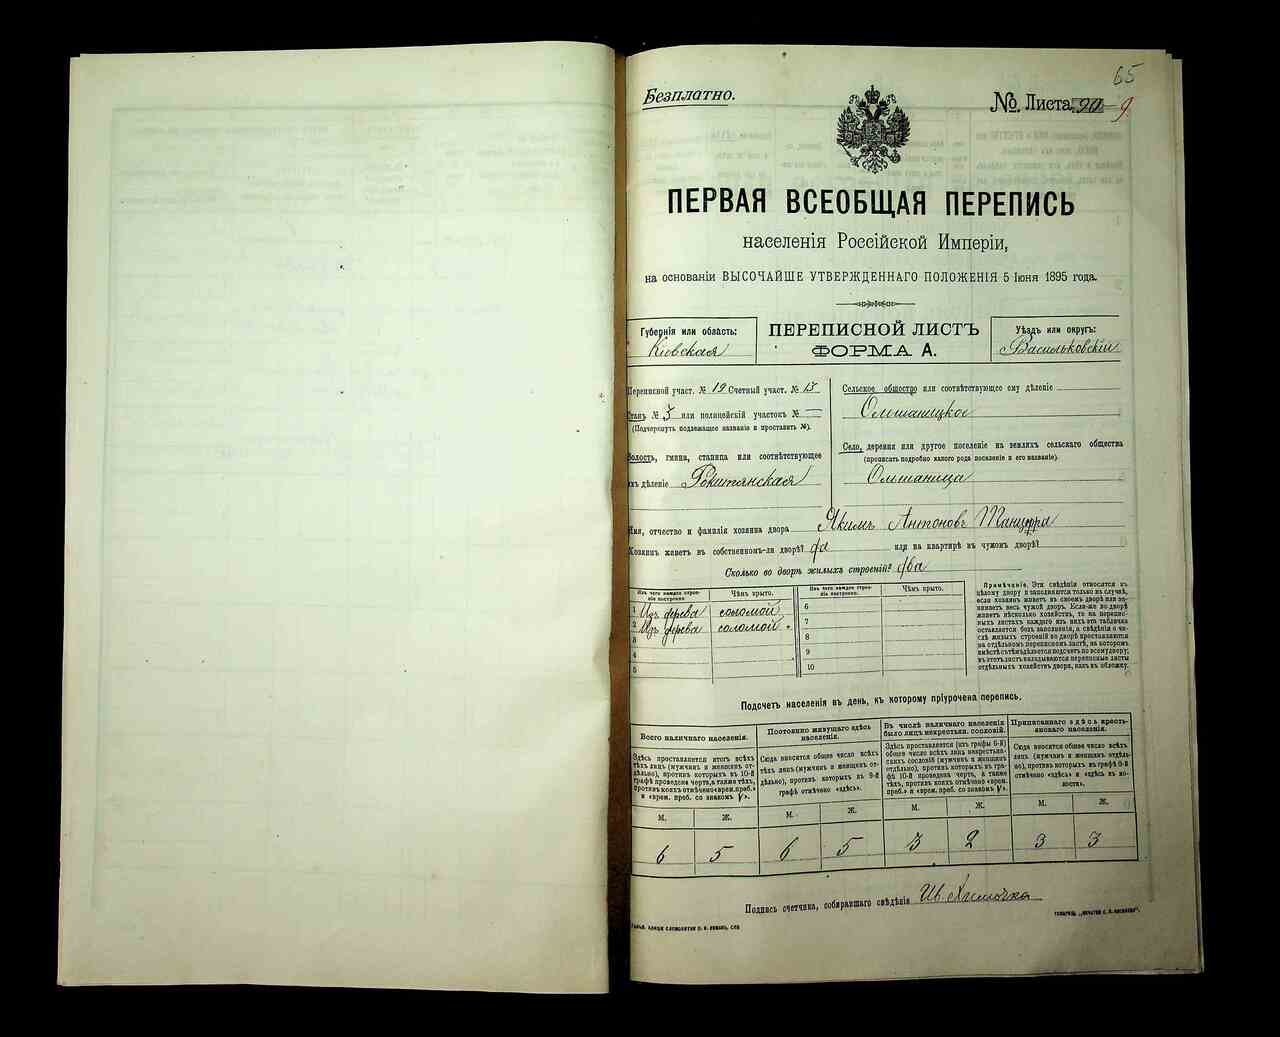 65
Безплатно.
№ Листа 90 9
ПЕРВАЯ ВСЕОБЩАЯ ПЕРЕПИСЬ
населенія Россійской Имперіи,
на основаніи ВЫСОЧАЙШЕ УТВЕРЖДЕННАГО ПОЛОЖЕНІЯ 5 Іюня 1895 года.
Губернія или область:
Кіевская
ПЕРЕПИСНОЙ ЛИСТЪ
ФОРМА А.
Уѣздъ или округъ:
Васильковскій
Переписной участ. № 19 Счетный участ. № 13
Станъ № 3 или полицейскій участокъ №
(Подчеркнуть подлежащее названіе и проставить №).
Волость, гмина, станица или соотвѣтствующее
имъ дѣленіе Рокитянская
Сельское общество или соотвѣтствующее ему дѣленіе
Олшаницкое
Село, деревня или другое поселеніе на земляхъ сельскаго общества
(прописать подробно какого рода поселеніе и его названіе).
Олшаница
Имя, отчество и фамилія хозяина двора Якимъ Антоновъ
Хозяинъ живетъ въ собственномъ-ли дворѣ? да или на квартирѣ въ чужомъ дворѣ?
Сколько во дворѣ жилыхъ строеній? два
Изъ чего каждое строеніе построено.
Чѣмъ крыто.
Изъ чего каждое строеніе построено.
Чѣмъ крыто.
1 Изъ дерева соломой
2 Изъ дерева соломой
3
4
5
6
7
8
9
10
Примѣчаніе. Эти свѣдѣнія относятся къ
цѣлому двору и заполняются только въ случаѣ,
если хозяинъ живетъ въ своемъ дворѣ или занимаетъ
весь чужой дворъ. Если-же во дворѣ
живетъ нѣсколько хозяйствъ, то на переписныхъ
листахъ каждаго изъ нихъ эта табличка
оставляется безъ заполненія, а свѣдѣнія о числѣ
жилыхъ строеній во дворѣ проставляются
на отдѣльномъ переписномъ листѣ, на которомъ
вмѣстѣ съ тѣмъ дѣлается подсчетъ по всему двору;
въ этотъ листъ вкладываются переписные листы
отдѣльныхъ хозяйствъ двора, какъ въ обложку.
Подсчетъ населенія въ день, къ которому пріурочена перепись.
Всего наличнаго населенія.
Здѣсь проставляется итогъ всѣхъ
тѣхъ лицъ (мужчинъ и женщинъ отдѣльно),
противъ которыхъ въ 10-й
графѣ проведена черта, а также тѣхъ,
противъ коихъ отмѣчено «врем. преб.»
и «врем. преб. со знакомъ V».
Постоянно живущаго здѣсь населенія.
Сюда вносятся общее число всѣхъ
тѣхъ лицъ (мужчинъ и женщинъ отдѣльно),
противъ которыхъ въ 9-й
графѣ отмѣчено «здѣсь».
Въ числѣ наличнаго населенія
было лицъ некрестьян. сословій.
Здѣсь проставляется (изъ графы 6-й)
общее число всѣхъ лицъ некрестьянскихъ
сословій (мужчинъ и женщинъ
отдѣльно), противъ которыхъ въ графѣ
10-й проведена черта, а также
тѣхъ, противъ коихъ отмѣчено «врем.
преб.» и «врем. преб. со знакомъ V».
Приписаннаго здѣсь крестьянскаго населенія.
Сюда вносится общее число всѣхъ
лицъ (мужчинъ и женщинъ отдѣльно),
противъ которыхъ въ графѣ 8-й
отмѣчено «здѣсь» и «здѣсь въ волости».
М. Ж. М. Ж. М. Ж. М. Ж.
6 5 6 5 3 2 3 3
Подпись счетчика, собиравшаго свѣдѣнія Ив.